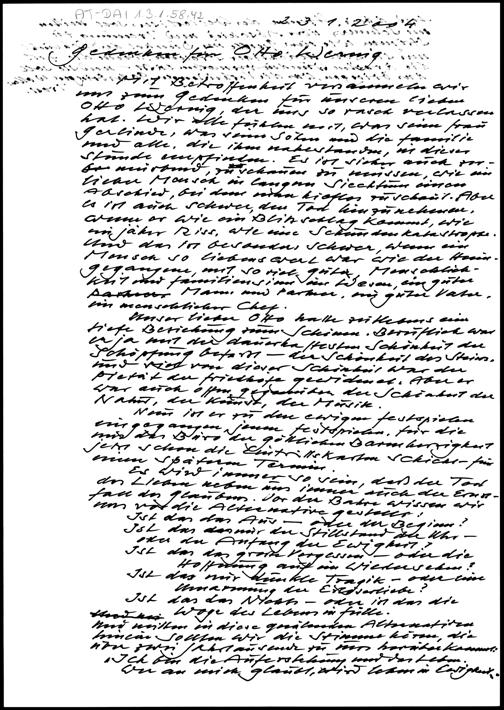 AT-DAI 13.1.58.42
23.1.2004
Gedenken für Otto Wernig
Mit Betroffenheit versammeln wir
uns zum Gedenken für unseren lieben
Otto Wernig, der uns so rasch verlassen
hat. Wir alle fühlen mit, was seine Frau
Gerlinde, was seine Söhne und die Familie
und alle, die ihm nahestanden, in dieser
Stunde empfinden. Es ist sicher auch zer-
mürbend, zuschauen zu müssen, wie ein
lieber Mensch in langem Siechtum einen
Abschied, bei dem man hilflos zuschaut. Aber
es ist auch schwer, den Tod hinzunehmen,
wenn er wie ein Blitzschlag kommt, wie
ein jäher Riss, wie eine Sekundenkatastrophe.
Und das ist besonders schwer, wenn ein
Mensch so liebenswert war wie der Heim-
gegangene, mit so viel Güte, Menschlich-
keit und Familiensinn im Wesen, ein guter
Mann und Partner, ein guter Vater,
ein menschlicher Chef.
Unser lieber Otto hatte zeitlebens eine
tiefe Beziehung zum Schönen. Beruflich war
er ja mit der dauerhaftesten Schönheit der
Schöpfung befasst – der Schönheit des Steins,
und viel von dieser Schönheit war der
Pietät der Friedhöfe gewidmet. Aber er
war auch offen gegenüber der Schönheit der
Natur, der Kunst, der Musik.
Nun ist er zu den ewigen Festspielen
eingegangen, jenen Festspielen, für die
uns das Büro der göttlichen Barmherzigkeit
jetzt schon die Eintrittskarten schickt – für
einen späteren Termin.
Es wird immer so sein, daß der Tod
der Lieben neben uns immer auch der Ernst-
fall des Glaubens. Vor der Bahre wissen wir
uns vor die Alternative gestellt:
Ist das das Aus – oder der Beginn?
Ist das das nur der Stillstand der Uhr –
oder der Anfang der Ewigkeit?
Ist das das große Vergessen – oder die
Hoffnung auf ein Wiedersehen?
Ist das nur dunkle Tragik – oder eine
Umarmung der Erlöserliebe?
Ist das das Nichts – oder ist das die
Woge des Lebens in Fülle.
Und mitten in diese quälenden Alternativen
hinein sollten wir die Stimme hören, die
über zwei Jahrtausende zu uns herüberkommt:
„Ich bin die Auferstehung und das Leben.
Wer an mich glaubt, wird leben in Ewigkeit."